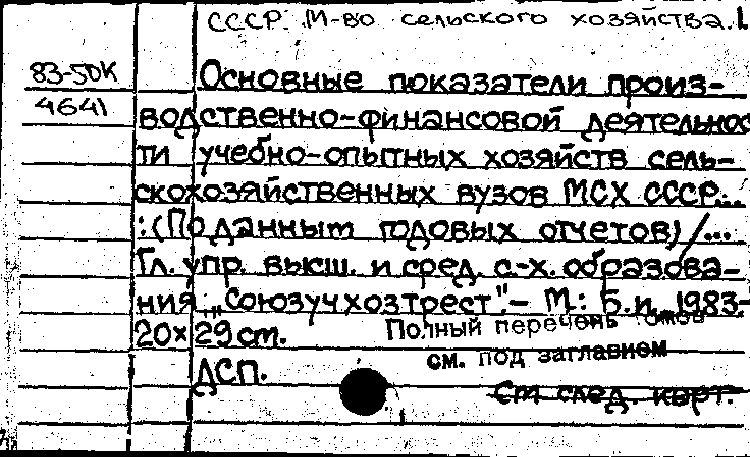 СССР. М-во сельского хозяйства.
83-5DK
4641
Основные показатели произ-
водственно-финансовой деятельнос
ти учебно-опытных хозяйств сель-
скохозяйственных вузов МСХ СССР...
:(По данным годовых отчетов)/...
Гл. упр. высш. и сред. с.-х. образова-
ния, „Союзучхозтрест".- М.: Б.и., 1983.-
20x29 cm.
Полный перечень томов
см. под заглавием
ДСП.
См след. карт.